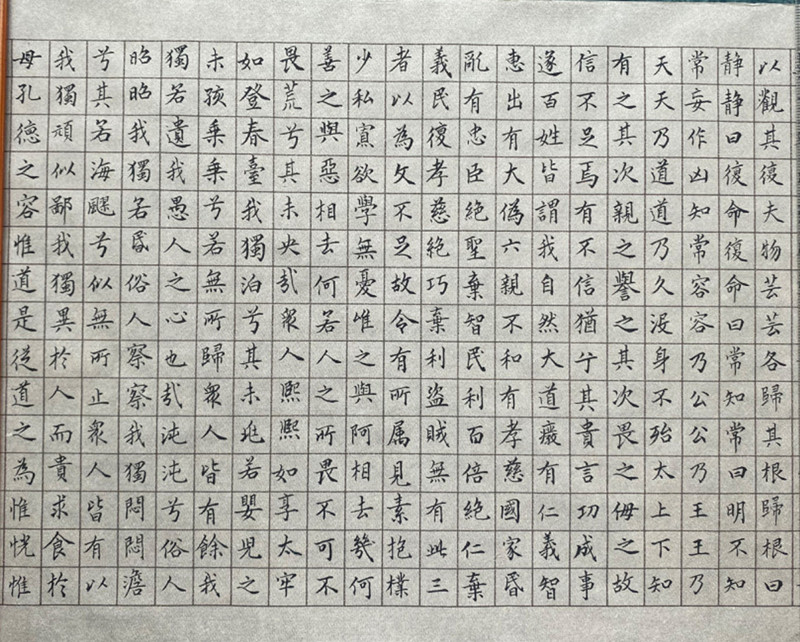 以觀其復夫物芸芸各歸其根歸根曰
静静曰復命復命曰常知常曰明不知
常妄作凶知常容容乃公公乃王王乃
天天乃道道乃久没身不殆太上下知
有之其次親之譽之其次畏之侮之故
信不足焉有不信猶乎其貴言功成事
遂百姓皆謂我自然大道癈有仁義智
惠出有大偽六親不和有孝慈國家昏
亂有忠臣絶聖棄智民利百倍絶仁棄
義民復孝慈絶巧棄利盗賊無有此三
者以為文不足故令有所属見素抱樸
少私寡欲學無憂惟之與阿相去幾何
善之與惡相去何若人之所畏不可不
畏荒兮其未央哉衆人熙熙如享太牢
如登春臺我獨泊兮其未兆若嬰兒之
未孩乗乗兮若無所歸衆人皆有餘我
獨若遺我愚人之心也哉沌沌兮俗人
昭昭我獨若昏俗人察察我獨悶悶澹
兮其若海飂兮似無所止衆人皆有以
我獨頑似鄙我獨異於人而貴求食於
母孔德之容惟道是從道之為惟恍惟